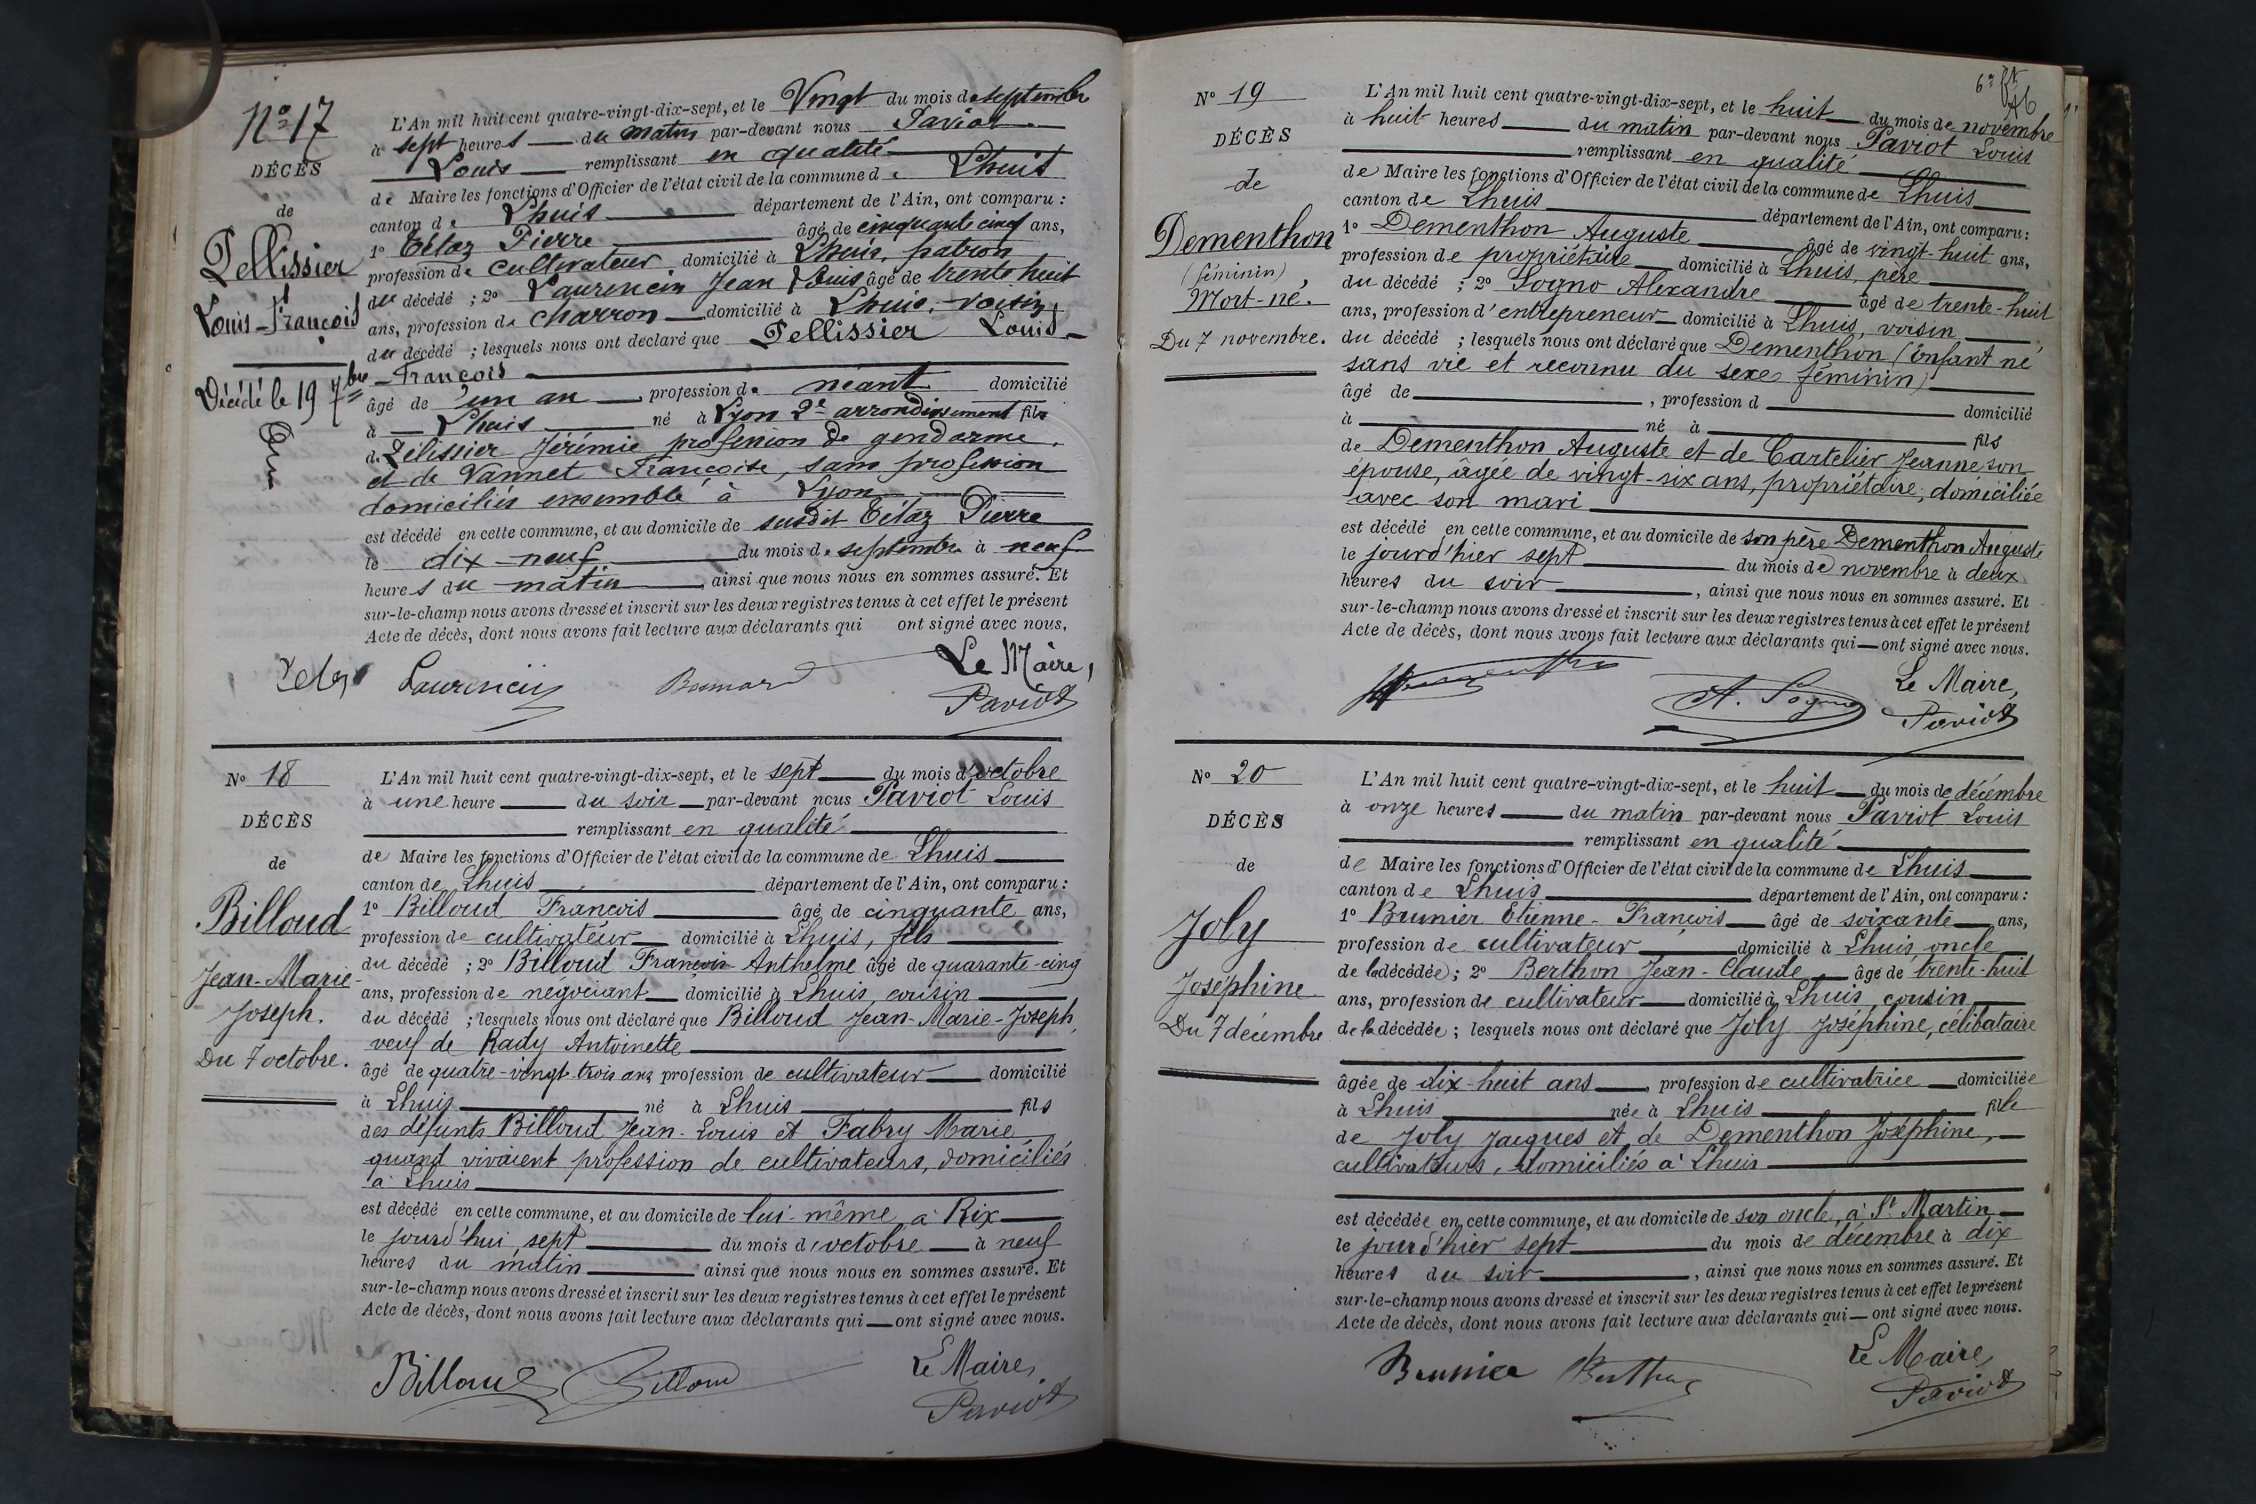 Nº 17
DÉCÈS
de
Pellissier
Louis-François
Décédé le 19 7bre
L'An mil huit cent quatre-vingt-dix-sept, et le Vingt du mois de septembre
à sept heures du matin par-devant nous Paviot
Louis remplissant en qualité
de Maire les fonctions d'Officier de l'état civil de la commune de Lhuis
canton de Lhuis département de l'Ain, ont comparu :
1º Tétaz Pierre âgé de cinquante cinq ans,
profession de cultivateur domicilié à Lhuis, patron
du décédé ; 2º Laurencin Jean Louis âgé de trente huit
ans, profession de charron domicilié à Lhuis, voisin
du décédé ; lesquels nous ont déclaré que Pellissier Louis-
-François
âgé de un an profession de néant domicilié
à Lhuis né à Lyon 2e arrondissement fils
de Pélissier Jérémie profession de gendarme
et de Vannet Françoise, sans profession
domiciliés ensemble à Lyon
est décédé en cette commune, et au domicile de susdit Tétaz Pierre
le dix-neuf du mois de septembre à neuf
heures du matin, ainsi que nous nous en sommes assuré. Et
sur-le-champ nous avons dressé et inscrit sur les deux registres tenus à cet effet le présent
Acte de décès, dont nous avons fait lecture aux déclarants qui ont signé avec nous.
Le Maire,
Laurencin Paviot
Nº 18
DÉCÈS
de
Billoud
Jean-Marie-
Joseph.
Du 7 octobre.
L'An mil huit cent quatre-vingt-dix-sept, et le sept du mois d'octobre
à une heure du soir par-devant nous Paviot Louis
remplissant en qualité
de Maire les fonctions d'Officier de l'état civil de la commune de Lhuis
canton de Lhuis département de l'Ain, ont comparu :
1º Billoud François âgé de cinquante ans,
profession de cultivateur domicilié à Lhuis, fils
du décédé ; 2º Billoud François Anthelme âgé de quarante-cinq
ans, profession de négociant domicilié à Lhuis, cousin
du décédé ; lesquels nous ont déclaré que Billoud Jean-Marie-Joseph,
veuf de Rady Antoinette
âgé de quatre-vingt-trois ans profession de cultivateur domicilié
à Lhuis né à Lhuis fils
des défunts Billoud Jean-Louis et Fabry Marie
quand vivaient profession de cultivateurs, domiciliés
à Lhuis
est décédé en cette commune, et au domicile de lui-même, à Rix
le jourd'hui sept du mois d'octobre à neuf
heures du matin ainsi que nous nous en sommes assuré. Et
sur-le-champ nous avons dressé et inscrit sur les deux registres tenus à cet effet le présent
Acte de décès, dont nous avons fait lecture aux déclarants qui — ont signé avec nous.
Le Maire,
Billoud Billoud Paviot
Nº 19
DÉCÈS
de
Dementhon
(féminin)
Mort-né.
Du 7 novembre.
L'An mil huit cent quatre-vingt-dix-sept, et le huit du mois de novembre
à huit heures du matin par-devant nous Paviot Louis
remplissant en qualité
de Maire les fonctions d'Officier de l'état civil de la commune de Lhuis
canton de Lhuis département de l'Ain, ont comparu :
1º Dementhon Auguste âgé de vingt-huit ans,
profession de propriétaire domicilié à Lhuis, père
du décédé ; 2º Sogno Alexandre âgé de trente-huit
ans, profession d'entrepreneur domicilié à Lhuis, voisin
du décédé ; lesquels nous ont déclaré que Dementhon (Enfant né
sans vie et reconnu du sexe féminin)
âgé de , profession d domicilié
à né à fils
de Dementhon Auguste et de Cartelier Jeanne son
épouse, âgée de vingt-six ans, propriétaire, domiciliée
avec son mari
est décédé en cette commune, et au domicile de son père Dementhon Auguste
le jourd'hier sept du mois de novembre à deux
heures du soir , ainsi que nous nous en sommes assuré. Et
sur-le-champ nous avons dressé et inscrit sur les deux registres tenus à cet effet le présent
Acte de décès, dont nous avons fait lecture aux déclarants qui — ont signé avec nous.
Le Maire,
A. Sogno Paviot
Nº 20
DÉCÈS
de
Joly
Joséphine
Du 7 décembre
L'An mil huit cent quatre-vingt-dix-sept, et le huit du mois de décembre
à onze heures du matin par-devant nous Paviot Louis
remplissant en qualité
de Maire les fonctions d'Officier de l'état civil de la commune de Lhuis
canton de Lhuis département de l'Ain, ont comparu :
1º Brunier Etienne-François âgé de soixante ans,
profession de cultivateur domicilié à Lhuis, oncle
de la décédée ; 2º Berthon Jean-Claude âgé de trente-huit
ans, profession de cultivateur domicilié à Lhuis, cousin
de la décédée ; lesquels nous ont déclaré que Joly Joséphine, célibataire
âgée de dix-huit ans, profession de cultivatrice domiciliée
à Lhuis née à Lhuis fille
de Joly Jacques et de Dementhon Joséphine,
cultivateurs, domiciliés à Lhuis
est décédée en cette commune, et au domicile de son oncle, à St Martin
le jourd'hier sept du mois de décembre à dix
heures du soir , ainsi que nous nous en sommes assuré. Et
sur-le-champ nous avons dressé et inscrit sur les deux registres tenus à cet effet le présent
Acte de décès, dont nous avons fait lecture aux déclarants qui — ont signé avec nous.
Le Maire,
Brunier Berthon Paviot